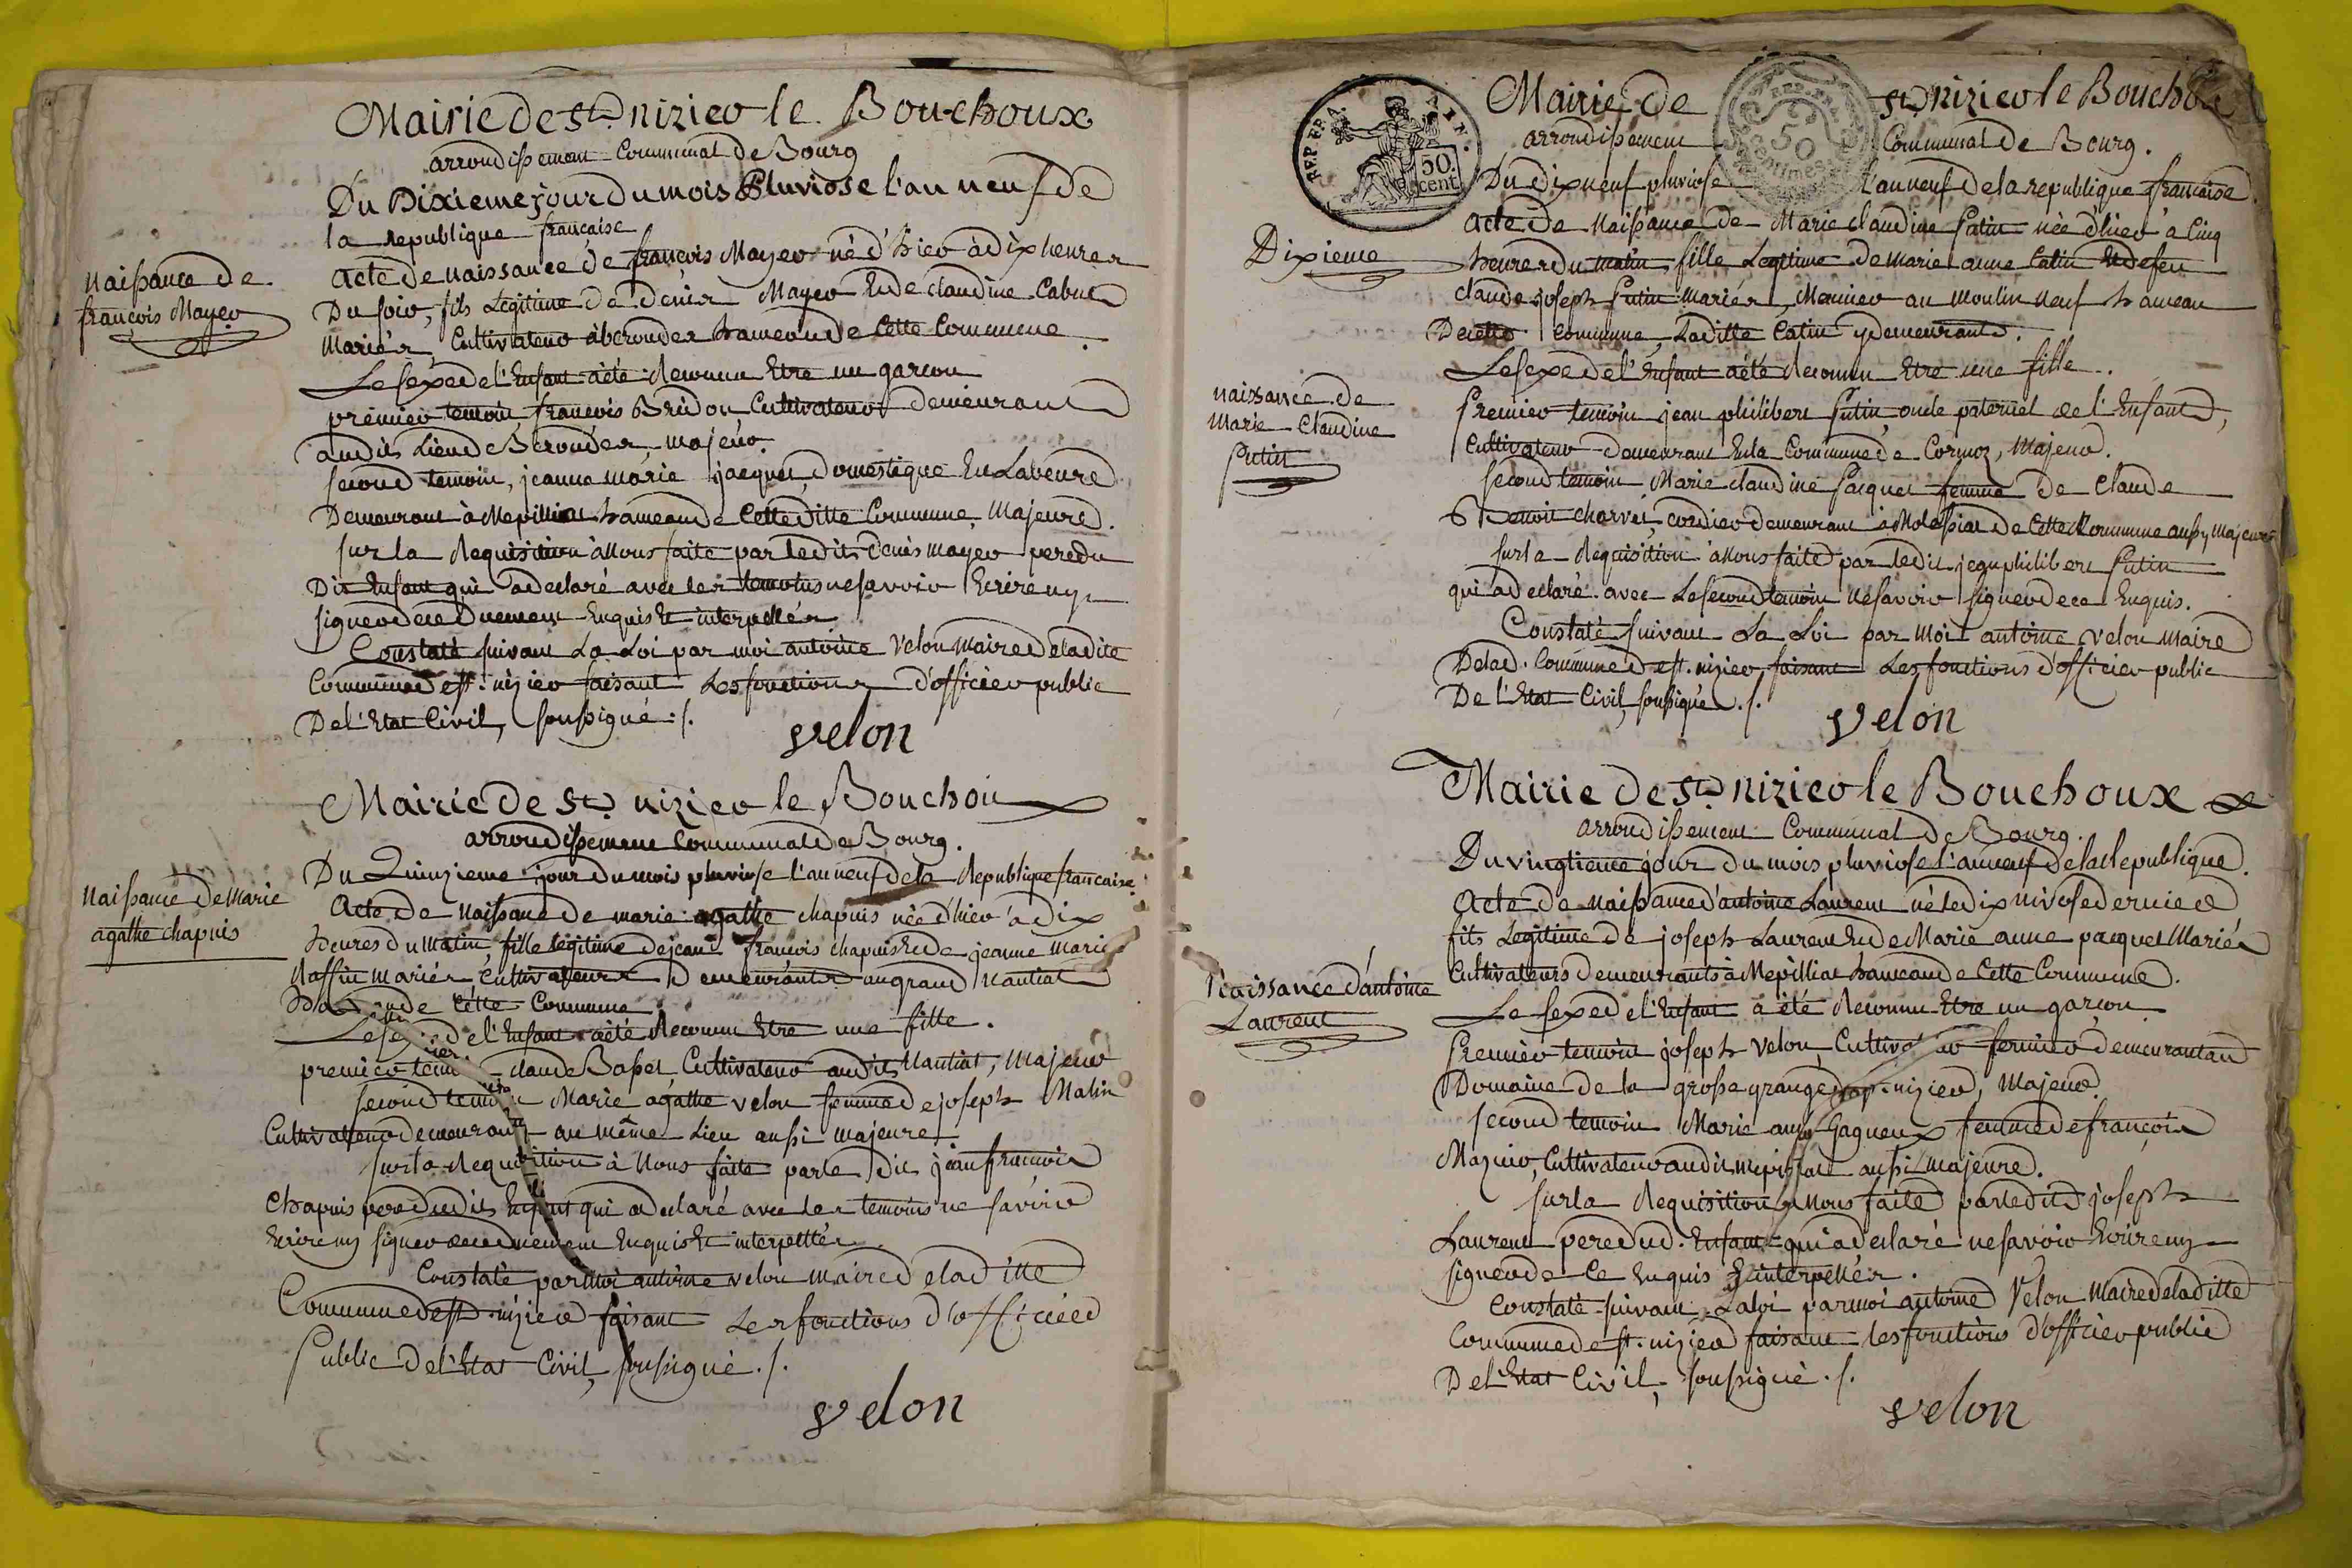 Mairie de St. nizier le Bouchoux
arrondissement Communal de Bourg
Du Dixieme jour du mois Pluviose l'an neuf de
la republique francaise
naissance de
françois Mayer
acte de naissance de françois Mayer né d'hier à dix heures
Du soir, fils Legitime de Denis Mayer Et de claudine Cabut
mariés, Cultivateur à berouder hameau de Cette Commune.
Le sexe de l'Enfant a été Reconnu Etre un garcon
premier temoin, francois Bridon Cultivateur demeurant
audit Lieu de Berouder, majeur.
second temoin, jeanne marie jacquet, domestique En Labeure
Demeurant à Mepilliat hameau de Cette ditte Commune, Majeure.
sur la Requisition à Nous faite par ledit denis mayer pere du
Dit Enfant qui a declaré avec les temoins ne savoir Ecrire ny
signer de ce duement Enquis Et interpellés
Constaté suivant La Loi par moi antoine Velon maire de ladite
Commune de st. nizier faisant Les fonctions d'officier public
De l'Etat Civil, soussigné ./.
velon
Mairie de St. nizier le Bouchou
arrondissement Communal de Bourg.
Du Quinzieme jour du mois pluviose l'an neuf de la Republique francaise
Naissance de Marie
agathe chapuis
Acte de Naissance de marie agathe chapuis née d'hier à dix
heures du matin, fille légitime de jean francois chapuis Et de jeanne marie
Raffin mariés, Cultivateurs Demeurants au grand Nantiat
de Cette Commune
Le sexe de l'Enfant a été Reconnu Etre une fille.
premier temoin claude Basset Cultivateur audit Nantiat, Majeur
second temoin Marie agathe velon femme de joseph Matin
Cultivateur demeurant au même Lieu aussi majeure
sur la Requisition à Nous faite par le dit jean francois
Chapuis pere dudit Enfant qui a declaré avec les temoins ne savoir
Ecrire ny signer de ce duement Enquis Et interpellés
Constaté par moi antoine velon maire de la ditte
Commune de st. nizier faisant Les fonctions d'officier
Public de l'Etat Civil, soussigné ./.
velon
REP. FRA. AIN.
50. cent
REP. FRA.
50
centimes
Mairie de St. nizier le Bouchoux
arrondissement Communal de Bourg.
Du dix neuf pluviose l'an neuf de la republique francaise
Dixieme
acte de Naissance de Marie claudine Putin née d'hier à Cinq
heures du matin, fille Legitime de marie anne Catin Et de feu
claude joseph Putin mariés, Meunier au moulin neuf hameau
De cette Commune, Laditte Catin y demeurante.
Le sexe de l'Enfant a été Reconnu Etre une fille.
naissance de
Marie Claudine
Putin
Premier temoin jean philibert Putin, oncle paternel de l'Enfant,
Cultivateur demeurant En la Commune de Cormoz, Majeur.
second temoin Marie claudine Pacquet femme de Claude
Benoit charvet, cordier demeurant à Molessiat de Cette Commune aussy majeure
sur la Requisition à Nous faite par ledit jean philibert Putin
qui a declaré avec Le second temoin Ne savoir signer de ce Enquis.
Constaté suivant La Loi par Moi antoine velon maire
De lad. Commune de st. nizier, faisant Les fonctions d'officier public
De l'Etat Civil, soussigné ./.
velon
Mairie de St. nizier le Bouchoux
arrondissement Communal de Bourg.
Du vingtieme jour du mois pluviose l'an neuf de la Republique
Acte de naissance d'antoine Laurent né le dix nivose dernier
fils Legitime de joseph Laurent Et de Marie anne pacquet Mariés
Naissance d'antoine
Laurent
Cultivateurs demeurants à Mepilliat hameau de Cette Commune.
Le sexe de l'Enfant a été Reconnu Etre un garcon
Premier temoin joseph velon, Cultivateur fermier demeurant au
Domaine de la grosse grange nizier, Majeur
second temoin Marie anne Gagneux femme de françois
Mayer, Cultivateur audit mepilliat aussi majeure.
sur la Requisition à Nous faite par ledit joseph
Laurent pere dud. Enfant qui a declaré ne savoir Ecrire ny
signer de Ce Enquis Et interpellés.
Constaté suivant La loi par moi antoine Velon Maire de laditte
Commune de st. nizier faisant les fonctions d'officier public
De l'Etat Civil, soussigné ./.
velon